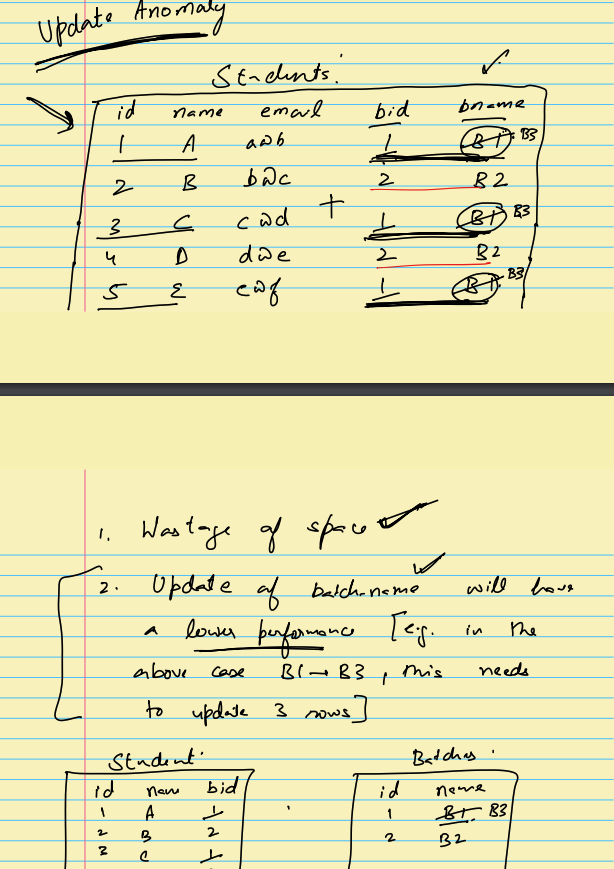 Update Anomaly
Students.
id name email bid bname
1 A a@b 1 B1 B3
2 B b@c 2 B2
3 C c@d + 1 B1 B3
4 D d@e 2 B2
5 E e@f 1 B1 B3
1. Wastage of space
2. Update of batch-name will have
a lower performance [e.g. in the
above case B1 → B3, this needs
to update 3 rows]
Student. Batches.
id nam bid id name
1 A 1 1 B1 B3
2 B 2 2 B2
3 C 1